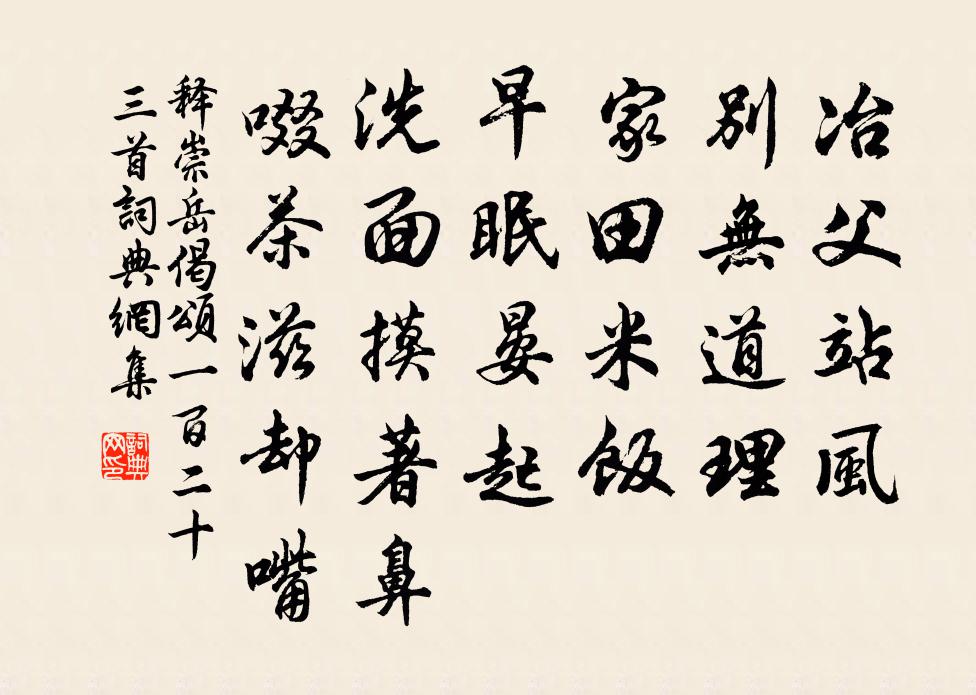 冶父站風
別無道理
家田米飯
早眠晏起
洗面摸著鼻
啜茶滋却嘴
释崇岳偈頌一百二十
三首詞典網集
詞典
网印